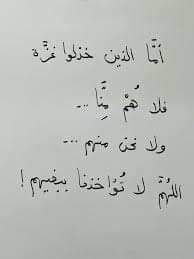 أمَّا الذين خذلوا غزَّة
فلا هُم مِنَّا ...
ولا نحن منهم ...
اللهُمَّ لا تُؤاخذنا ببغيهم !